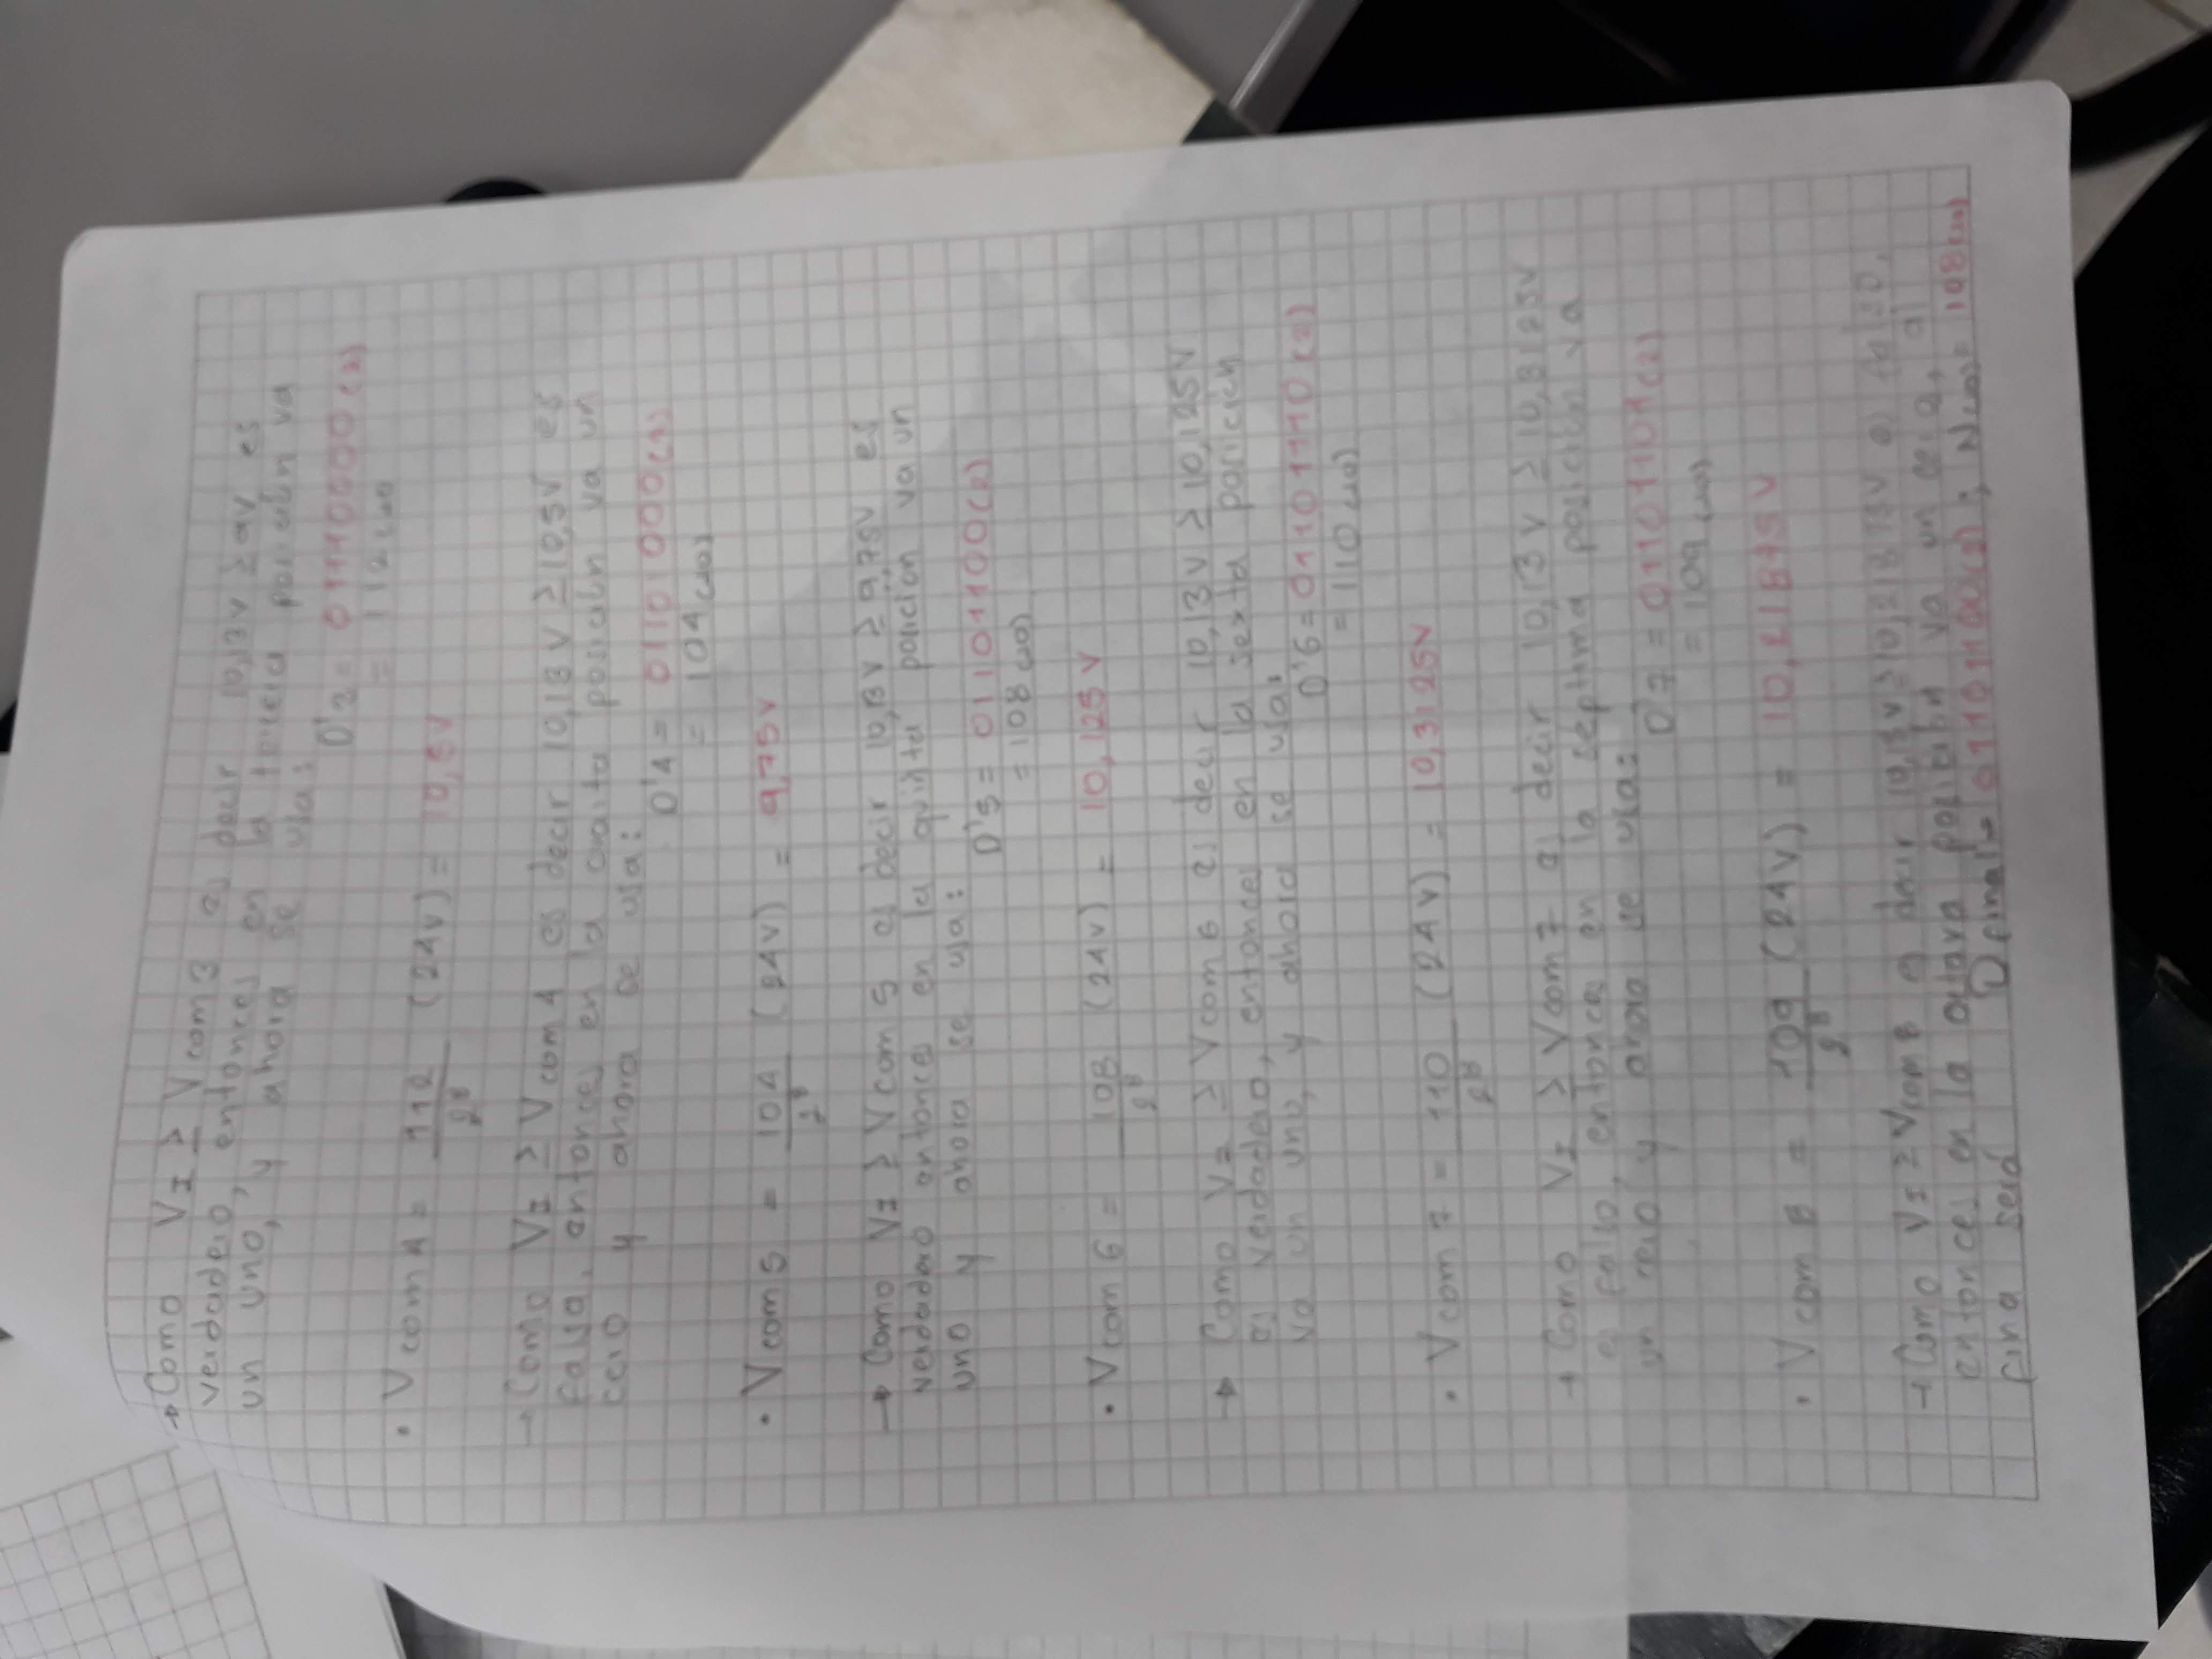 → Como VI ≥ Vcom3 es decir 10,13v ≥ 9v, es
verdadero, entonces en la tercera posición va
un uno, y ahora se usa:
D'3 = 01110000(2)
= 112(10)
• Vcom4 = 112/2⁸ (24v) = 10,5v
→ Como VI ≥ Vcom4 es decir 10,13V ≥ 10,5V es
falsa, entonces en la cuarta posición va un
cero y ahora se usa:
D'4 = 01101000(2)
= 104(10)
• Vcom5 = 104/2⁸ (24v) = 9,75v
→ Como VI ≥ Vcom5 es decir 10,13V ≥ 9,75V es
verdadero entonces en la quinta posición va un
uno y ahora se usa:
D'5 = 01101100(2)
= 108(10)
• Vcom6 = 108/2⁸ (24v) = 10,125V
→ Como VI ≥ Vcom6 es decir 10,13V ≥ 10,125V
es verdadero, entonces en la sexta posición
va un uno, y ahora se usa:
D'6 = 01101110(2)
= 110(10)
• Vcom7 = 110/2⁸ (24V) = 10,3125V
→ Como VI ≥ Vcom7 es decir 10,13V ≥ 10,3125V
es falso, entonces en la séptima posición va
un cero y ahora se usa:
D'7 = 01101101(2)
= 109(10)
• Vcom8 = 109/2⁸ (24V) = 10,21875V
→ Como VI ≥ Vcom8 es decir 10,13V ≥ 10,21875V es falso,
entonces en la octava posición va un cero, al
fina será Dfinal = 01101100(2) ; N(10) = 108(10)